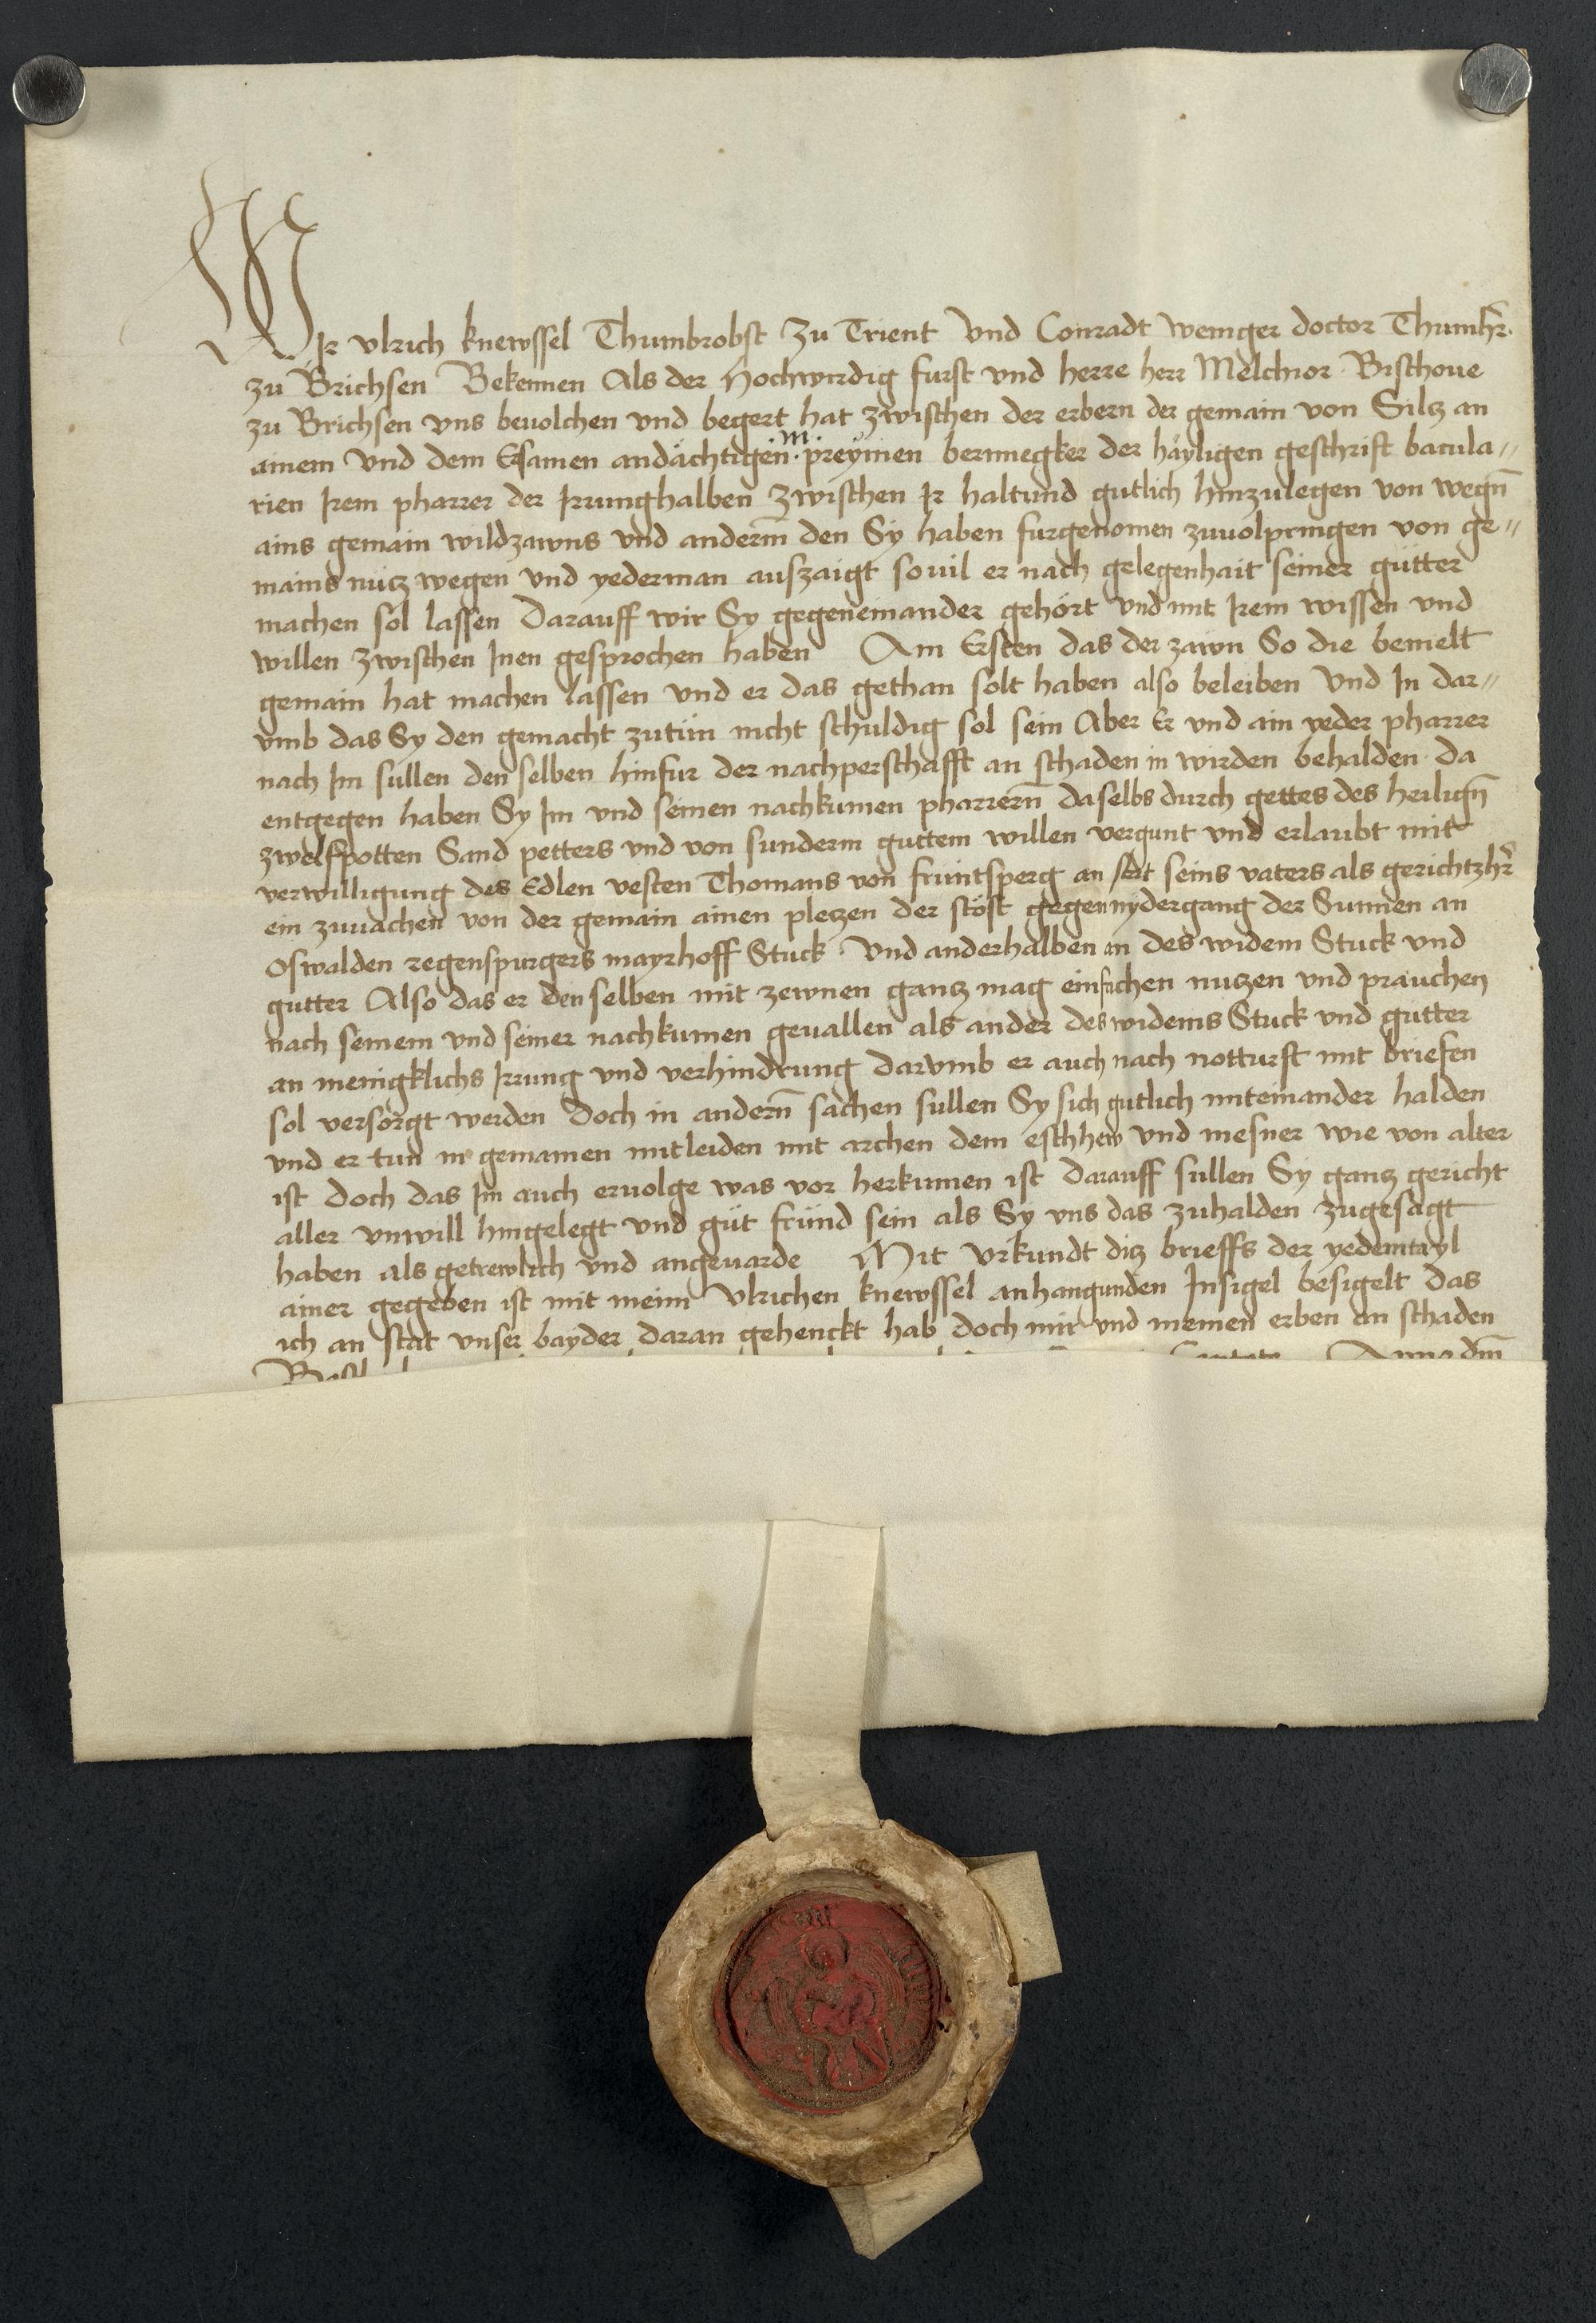 WIr vlrich knewssel Thumbrobst Zu Trient Vnd Conradt wenger doctor Thumhr̄.
zu Brichsen Bekennen Als der Hochwirdig furst vnd herre herr Melchior Bischoue
zu Brichsen vns beuolchen vnd begert hat zwischen der erbern der gemain von Silz an
ainem Vnd dem Ersamen andächtigen .M. preymen bernnegker der häyligen geschrift bacula〃
rien Irem pharrer der Irrunghalben zwischen Ir haltund gutlich hinzulegen von wegn̄
ains gemain wildzawns vnd anderm̄ den Sy haben furgenomen zuuolpringen von ge〃
mains nütz wegen vnd yederman auszaigt souil er nach gelegenhait seiner gütter
machen sol lassen Darauff wir Sy gegeneinander gehört vnd mit Irem wissen vnd
willen zwischen Inen gesprochen haben Am Ersten das der zawn So die bemelt
gemain hat machen lassen vnd er das gethan solt haben also beleiben Vnd In dar〃
vmb das Sy den gemacht zutün nicht schuldig sol sein Aber Er vnd ain yeder pharrer
nach Im sullen den selben hinfur der nachperschafft an schaden in wirden behalden da
entgegen haben Sy Im vnd seinen nachkumen pharrern̄ daselbs durch gottes des heilign̄
zwelfpotten Sand petters vnd von sunderm guttem willen vergunt vnd erlaubt mit
verwilligung des Edlen vesten Thomans von fruntsperg an stat seins vaters als gerichtzhr̄
ein zuuachen von der gemain ainen pletzen der stöst gegen nydergang der Sunnen an
Oswalden regenspurgers mayrhoff Stuck Vnd anderhalben an des widem Stuck vnd
gutter Also das er den selben mit zewnen gantz mag einfachen nutzen vnd prauchen
nach seinem vnd seiner nachkumen geuallen als ander des widems Stuck vnd gütter
an menigklichs Irrung vnd verhindrung darvmb er auch nach notturft mit briefen
sol versorgt werden Doch in andern̄ sachen sullen Sy sich gutlich miteinander halden
vnd er tun in gemainen mitleiden mit archen dem eschhew vnd mesner wie von alter
ist doch das Im auch ervolge was vor herkumen ist Darauff sullen Sy gantz gericht
aller vnwill hingelegt vnd güt fründ sein als Sy vns das zuhalden zugesagt
haben als getrewlich vnd angeuarde Mit Vrkundt ditz brieffs der yedemtayl
ainer gegeben ist mit meim Vlrichen knewssel anhangunden Insigel besigelt das
ich an stat vnser bayder daran gehenckt hab doch mir vnd meinen erben an schaden
Anno dm̄